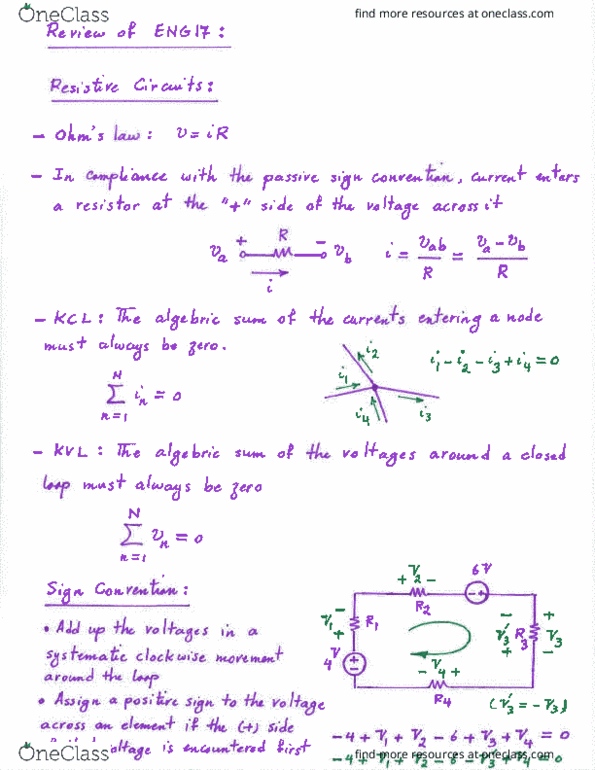 OneClass
find more resources at oneclass.com
Review of ENG17:
Resistive Circuits:
- Ohm's law: v = iR
- In compliance with the passive sign convention, current enters
a resistor at the "+" side of the voltage across it
v_a + R - v_b i = v_ab / R = (v_a - v_b) / R
i
- KCL: The algebric sum of the currents entering a node
must always be zero.
i_1 i_2 i_3 i_4 i_1 - i_2 - i_3 + i_4 = 0
N Σ n=1 i_n = 0
- KVL: The algebric sum of the voltages around a closed
loop must always be zero
N Σ n=1 v_n = 0
Sign Convention:
• Add up the voltages in a
systematic clockwise movement
around the loop
• Assign a positive sign to the voltage
across an element if the (+) side
voltage is encountered first
+ V_2 - 6V
R_2 - +
- V_1 + R_1 - V_3' + R_3 + V_3 -
4V + -
- V_4 +
R_4 (V_3' = -V_3)
-4 + V_1 + V_2 - 6 + V_3 + V_4 = 0
OneClass
find more resources at oneclass.com